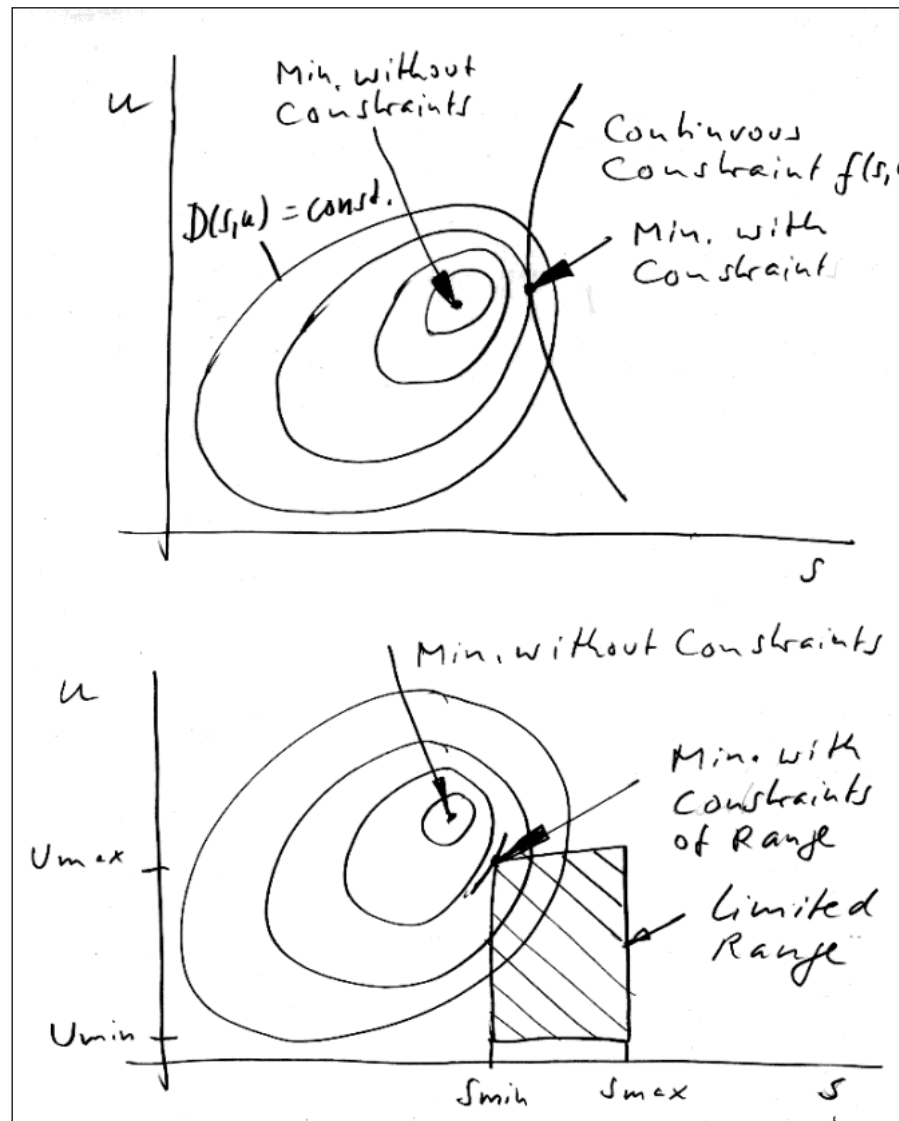 Min. without
Constraints
u
Continuous
Constraint f(s,
D(s,u) = const.
Min. with
Constraint
s
Min. without Constraints
u
Min. with
Constraints
of Range
Umax
Limited
Range
Umin
smin
smax
s